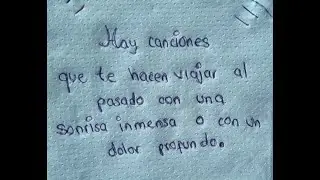 Hay canciones
que te hacen viajar al
pasado con una
sonrisa inmensa o con un
dolor profundo.